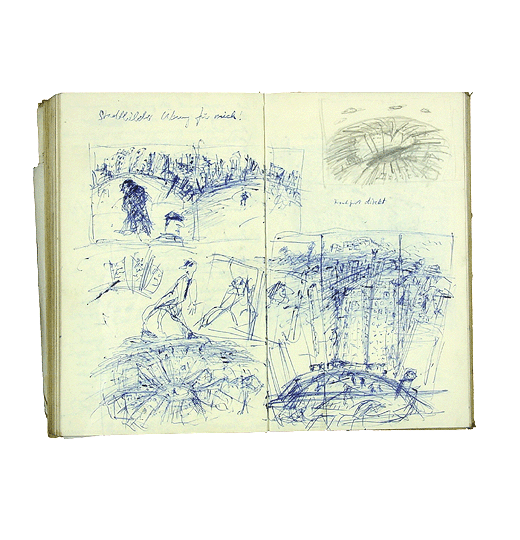 Stadtbilder Übung für mich!
direkt